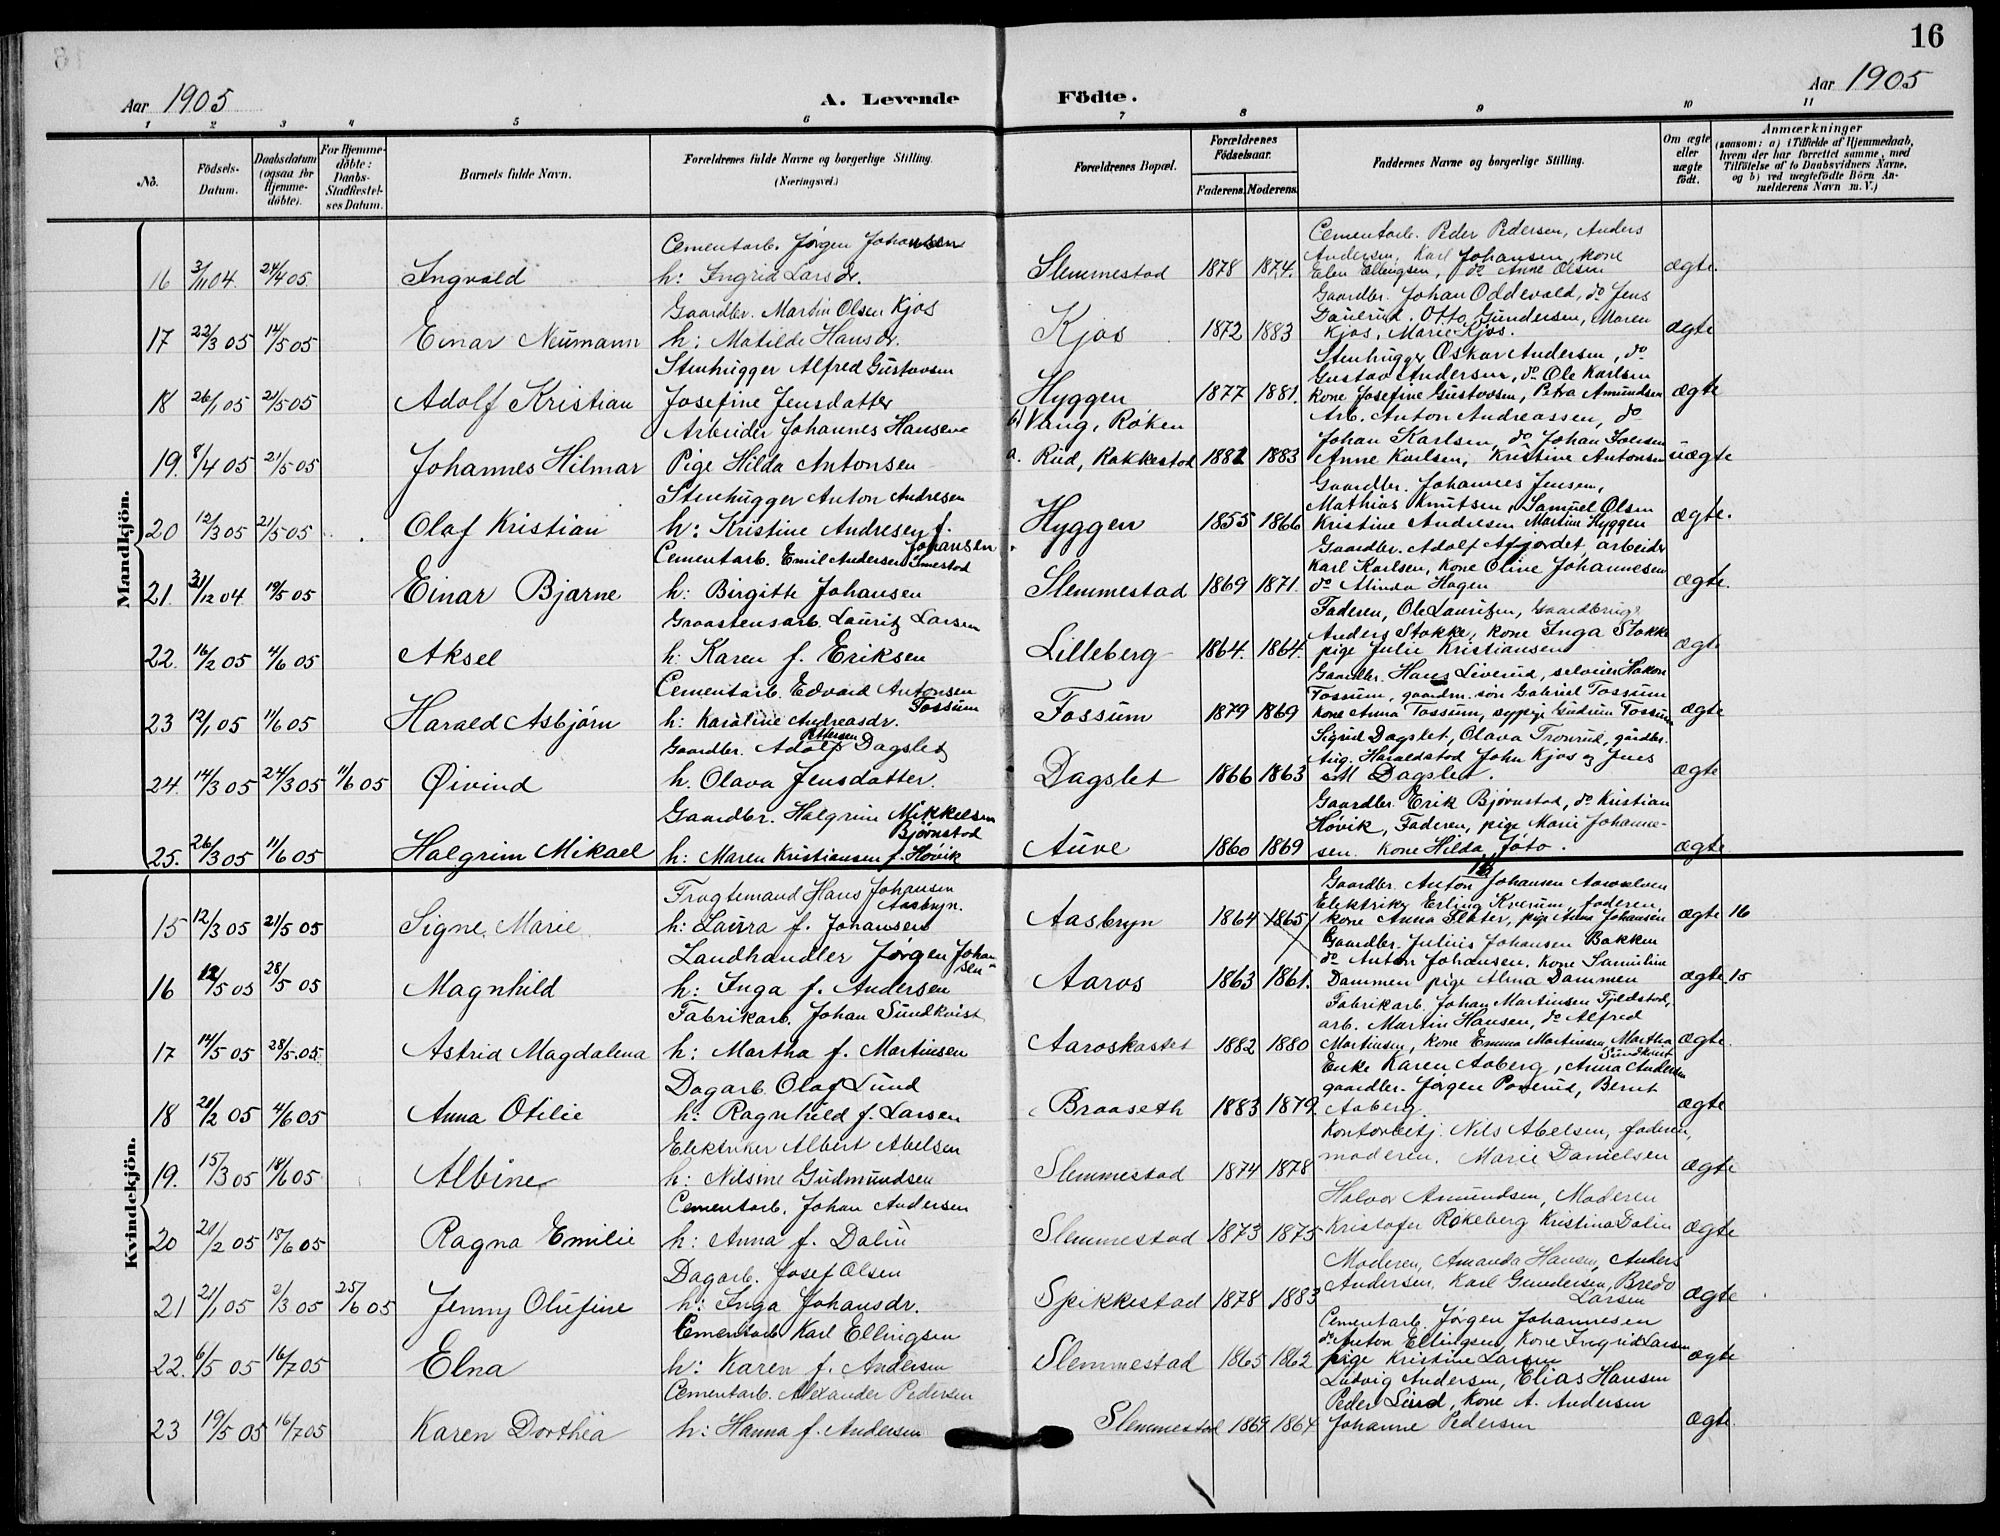 16
Aar 1905
A. Levende
Födte.
Aar 1905
1 2 3 4 5 6 7 8 9 10 11
No.
Födsels-Datum.
Daabsdatum (ogsaa for Hjemmedöbte).
For Hjemmedöbte: Daabs-Stadfæstelses Datum.
Barnets fulde Navn.
Forældrenes fulde Navne og borgerlige Stilling. (Næringsvei.)
Forældrenes Bopæl.
Forældrenes Födselsaar.
Faderens. Moderens.
Faddernes Navne og borgerlige Stilling.
Om ægte eller uægte födt.
Anmærkninger
(saasom: a) i Tilfælde af Hjemmedaab, hvem der har forrettet samme, med Tilföielse af to Daabsvidners Navne, og b) ved uægtefödte Börn Anmelderens Navn m. V.)
Mandkjön.
Cementarb. Jørgen Johansen
Cementarb. Peder Pedersen, Anders
Andersen, Karl Johansen, kone
16 3/11 04 24/4 05 Ingvald h: Ingrid Larsdr. Slemmestad 1878 1874. Elen Ellingsen, do Anne Olsen ægte.
Gaardbr. Martin Olsen Kjos
Gaardbr. Johan Oddevald, do Jens
17 22/3 05 14/5 05 Einar Neumann h: Matilde Hansdr. Kjos 1872 1883 Otto Gundersen, Maren
Kjos, Marie Kjos. ægte
Stenhugger Alfred Gustavsen
Stenhugger Oskar Andersen, do
Gustav Andersen, do Ole Karlsen
18 26/1 05 21/5 05 Adolf Kristian Josefine Jensdatter Hyggen 1877 1881. kone Josefine Gustavsen, Petra Amundsen ægte
Arbeider Johannes Hansen b) Vang, Røken
Arb. Anton Andreassen, do
Johan Karlsen, do Johan
19. 8/4 05 21/5 05 Johannes Hilmar Pige Hilda Antonsen a. Rud, Rakkestad 1882 1883 Anne Karlsen, Kristine Antonsen uægte
Stenhugger Anton Andresen
Gaardbr. Johannes Jensen,
Mathias Knutsen, Samuel Olsen
20 12/3 05 21/5 05 Olaf Kristian h: Kristine Andresen f. Johansen Hyggen 1855 1866 Kristine Andresen Martin Hyggen ægte.
Cementarb. Emil Andersen
Gaardbr. Adolf arbeider
Karl Karlsen, Kone Oline Johannesen
21. 31/12 04 19/5 05 Einar Bjarne h: Birgitte Johansen Slemmestad 1869 1871. do Minda Hagen ægte.
Graastensarb. Lauritz Larsen
Faderen, Ole Lauritzen, Gaardbrug
Anders Stokke, kone Inga Stokke
22. 16/2 05 4/6 05 Aksel h: Karen f. Eriksen Lilleberg 1864. 1864. pige Julie Kristiansen ægte
Cementarb. Edvard Antonsen Fossum
Gaardbr. Hans Liverud, selveier Hakon
Fossum, gaardm. søn Gabriel Fossum
23 12/1 05 11/6 05 Harald Asbjørn h: Karoline Andreasdr. Fossum 1879 1869 kone Anna Fossum, sypige Gudrun Fossum ægte
Gaardbr. Adolf Pettersen Dagslet
Sigrid Dagslet, Olava Tronrud, gårdbr.
Aug. Haraldstad John Kjos og Jens
24. 14/3 05 24/3 05 11/6 05 Øivind h. Olava Jensdatter. Dagslet 1866 1863 Dagslet. ægte
Gaardbr. Halgrim Mikkelsen Bjørnstad
Gaardbr. Erik Bjørnstad, do Kristian
Høvik, Faderen, pige Marie Johanne-
25. 26/3 05 11/6 05 Halgrim Mikael h: Maren Kristiansen f. Høvik Auve 1860 1869 sen. Kone Hilda Joto. ægte
Kvindekjön.
Fragtemand Hans Johansen Aasbryn.
Gaardbr. Anton Johansen
Elektriker Erling faderen,
15 12/3 05 21/5 05 Signe Marie h: Laura f. Johansen Aasbryn 1864 1865 kone Anna pige Anna Johansen ægte 16
Landhandler Jørgen Johansen
Gaardbr. Julius Johansen Bakken
do Anton Johansen. Kone Samuline
16 12/5 05 28/5 05 Magnhild h: Inga f. Andersen Aaros 1863 1861. Dammen pige Alma Dammen ægte 15
Fabrikarb. Johan Sundkvist
Fabrikarb. Johan Martinsen Fjeldstad,
arb. Martin Hansen, do Alfred
17 14/5 05 28/5.05 Astrid Magdalena h: Martha f. Martinsen Aaroskastet 1882 1880 Martinsen, kone Emma Martinsen, Martha Sundkvist ægte.
Dagarb. Olaf Lund
Enke Karen Aaberg, Anna Andersen
gaardbr. Jørgen Bernt
18 21/2 05 4/6 05 Anna Otilie h: Ragnhild f. Larsen Braaseth 1883 1879. Aaberg. ægte
Elektriker Albert Abelsen
Kontorbetj. Nils Abelsen, faderen,
19. 15/3 05 18/6 05 Albine h: Nilsine Gudmundsen Slemmestad 1874 1878 moderen. Marie Danielsen ægte
Cementarb. Johan Andersen
Halvor Amundsen, Moderen
20 21/2 05 18/6 05 Ragna Emilie h: Anna f. Dalin Slemmestad 1873 1875 Kristofer Røkeberg Kristina Dalin ægte
Dagarb. Josef Olsen
Moderen, Amanda Hansen, Anders
21 21/1 05 2/3 05 25/6 05 Jenny Olufine h: Inga Johansdr. Spikkestad 1878 1883 Andersen, Karl Gundersen, Bredo Larsen ægte
Cementarb. Karl Ellingsen
Cementarb. Jørgen Johannesen
do Anton Ellingsen, Kone Ingrid Larsen
22. 6/5 05 16/7 05 Elna h: Karen f. Andersen Slemmestad 1865 1862 pige Kristine Larsen ægte
Cementarb. Alexander Pedersen
Ludvig Andersen, Elias Hansen
Peder Lund, Kone A. Andersen
23 19/5 05 16/7 05 Karen Dorthea h: Hanna f. Andersen Slemmestad 1869 1864 Johanne Pedersen ægte.